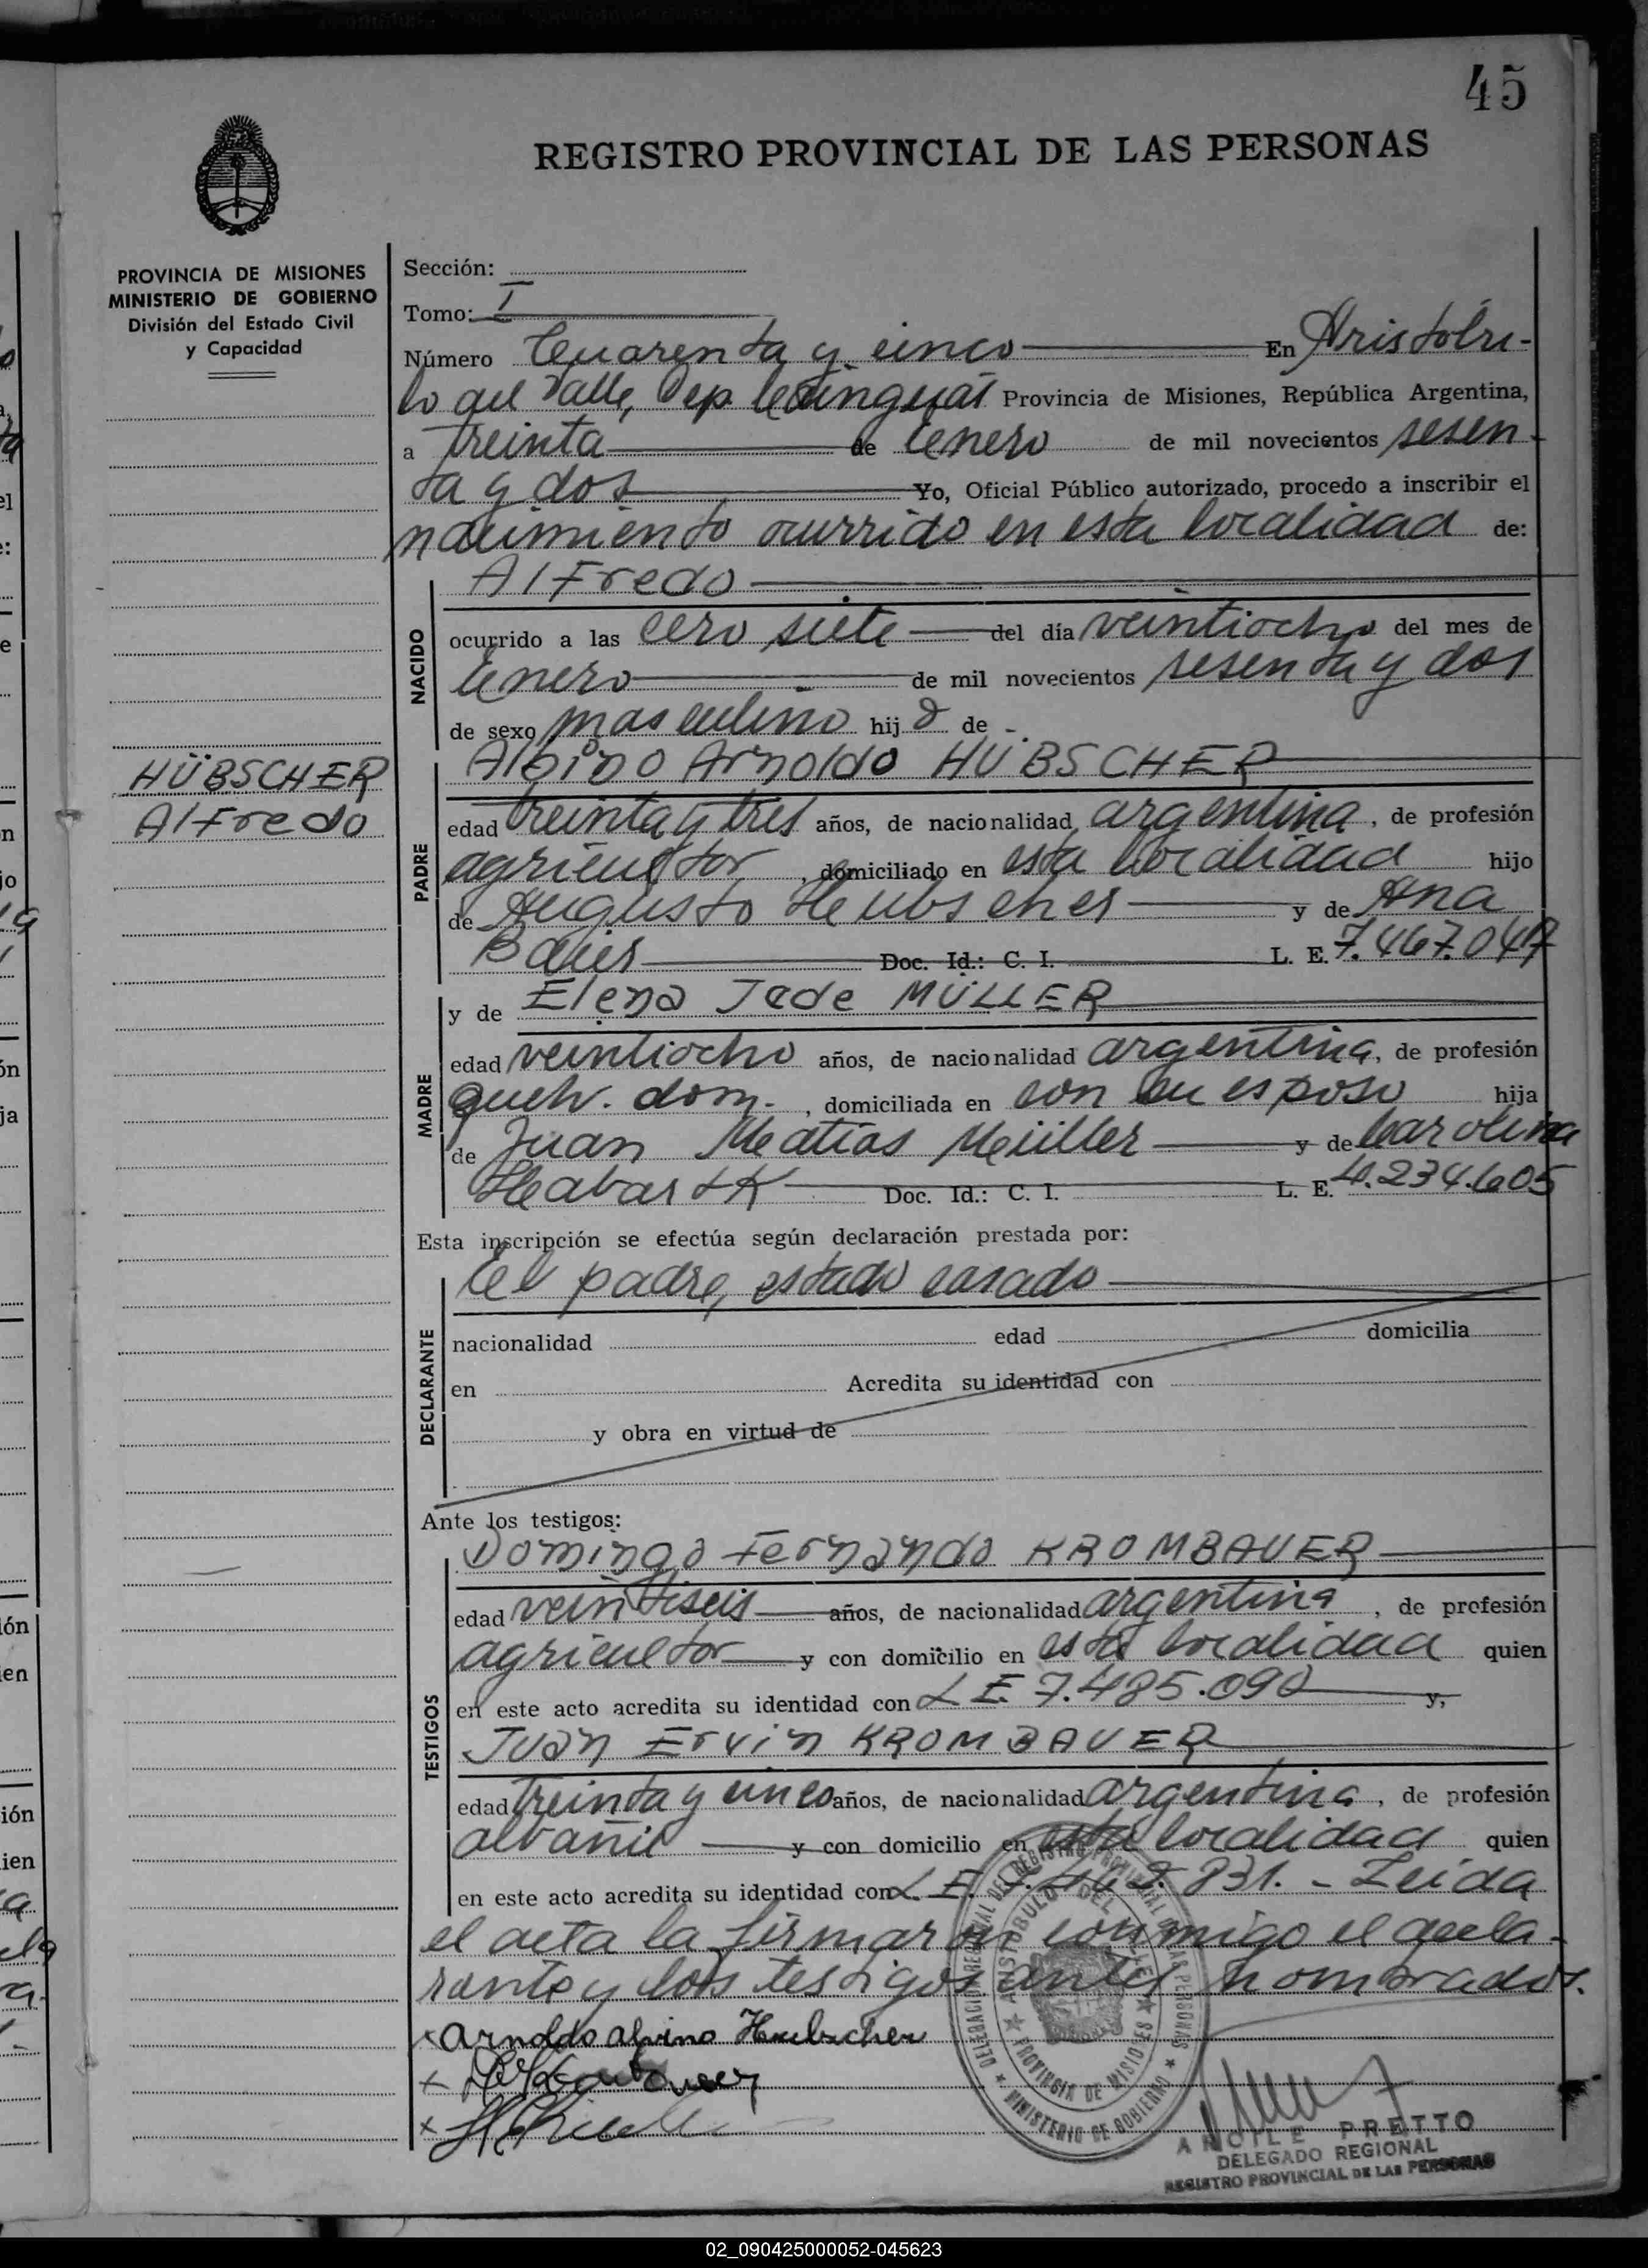 45
REGISTRO PROVINCIAL DE LAS PERSONAS
PROVINCIA DE MISIONES
MINISTERIO DE GOBIERNO
División del Estado Civil
y Capacidad
HÜBSCHER
Alfredo
Sección:
Tomo: I
Número Cuarenta y cinco En Aristóbu-
lo del Valle, Dep. Cainguás Provincia de Misiones, República Argentina,
a treinta de Enero de mil novecientos sesen-
ta y dos Yo, Oficial Público autorizado, procedo a inscribir el
nacimiento ocurrido en esta localidad de:
NACIDO
Alfredo
ocurrido a las cero siete del día veintiocho del mes de
Enero de mil novecientos sesenta y dos
de sexo masculino hijo de
PADRE
Albino Arnoldo HÜBSCHER
edad treinta y tres años, de nacionalidad argentina, de profesión
agricultor, domiciliado en esta localidad hijo
de Augusto Heubscher y de Ana
Baier Doc. Id.: C. I. L. E. 7.467.047
MADRE
y de Elena Jede MÜLLER
edad veintiocho años, de nacionalidad argentina, de profesión
queh. dom., domiciliada en con su esposo hija
de Juan Matias Meüller y de Carolina
Doc. Id.: C. I. L. E. 4.234.605
Esta inscripción se efectúa según declaración prestada por:
DECLARANTE
El padre, estado casado
nacionalidad edad domicilia
en Acredita su identidad con
y obra en virtud de
Ante los testigos:
TESTIGOS
Domingo Fernando KROMBAUER
edad veintiseis años, de nacionalidad argentina, de profesión
agricultor y con domicilio en esta localidad quien
en este acto acredita su identidad con L E. 7.485.090 y,
Juan Ervin KROMBAUER
edad treinta y cinco años, de nacionalidad argentina, de profesión
albañil y con domicilio en esta localidad quien
en este acto acredita su identidad con L. E. 831. - Leida
el acta la firmaron conmigo el decla-
rante y los testigos antes nombrados.
x Arnoldo Alvino Huebscher
x
x
DELEGACION REGIONAL DEL REGISTRO PROVINCIAL DE LAS PERSONAS
ARISTOBULO DEL VALLE
PROVINCIA DE MISIONES
MINISTERIO DE GOBIERNO
PRETTO
DELEGADO REGIONAL
REGISTRO PROVINCIAL DE LAS PERSONAS
02_090425000052-045623